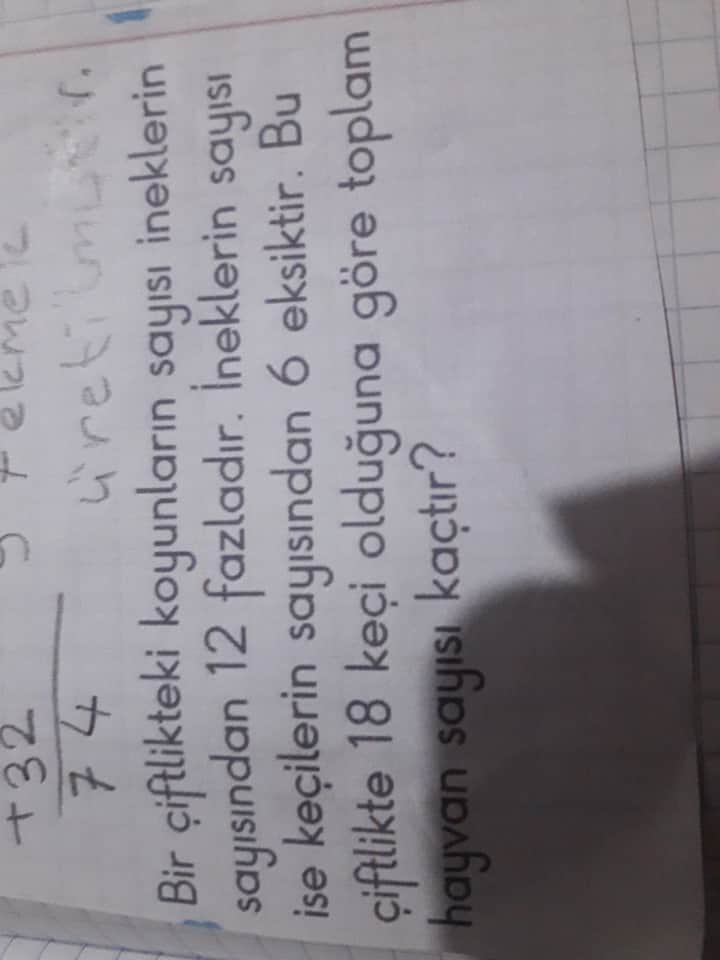 ekmek
+32
74 üretilmiştir.
Bir çiftlikteki koyunların sayısı ineklerin
sayısından 12 fazladır. İneklerin sayısı
ise keçilerin sayısından 6 eksiktir. Bu
çiftlikte 18 keçi olduğuna göre toplam
hayvan sayısı kaçtır?